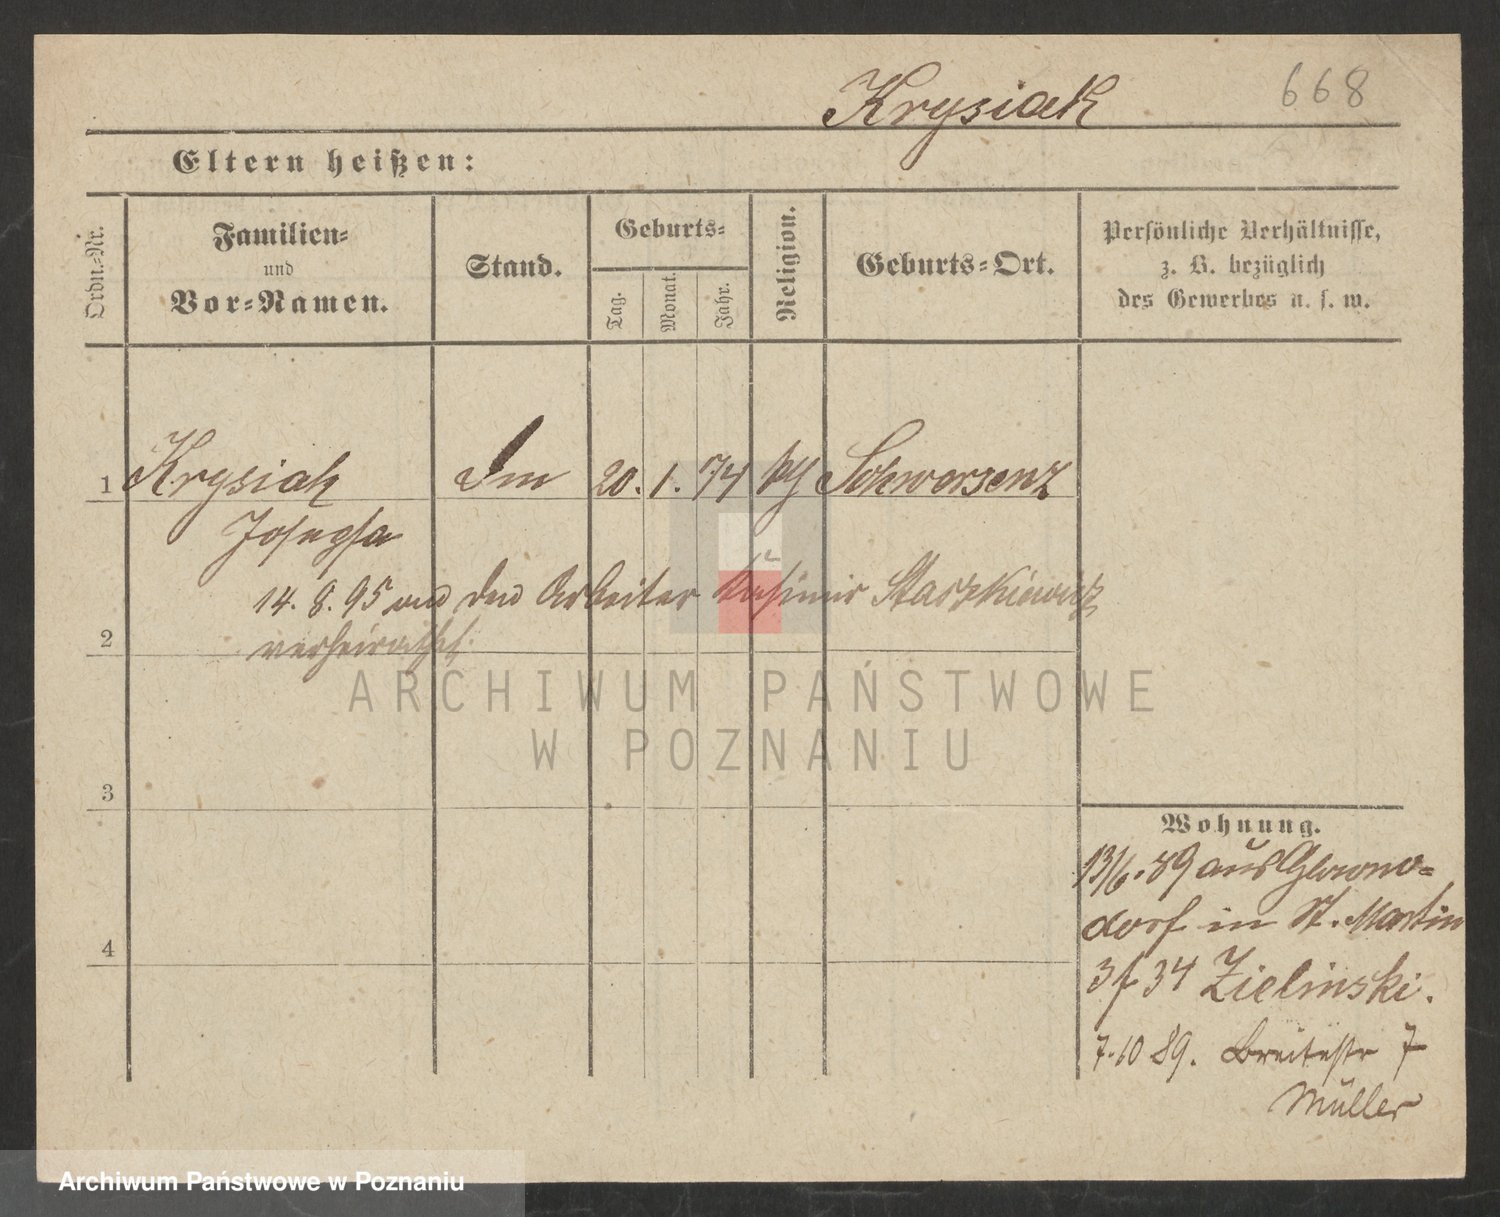 Krysiak 668
Eltern heißen:
Ordn.-Nr.
Familien-
und
Vor-Namen.
Stand.
Geburts-
Tag.
Monat.
Jahr.
Religion.
Geburts-Ort.
Persönliche Verhältnisse,
z. B. bezüglich
des Gewerbes u. s. w.
1 Krysiak 20. 1. 74 Schwersenz
Josepha
14. 8. 95 den Arbeiter Kasimir Starzkiewicz
2 verheirathet.
3
4
Wohnung.
13/6. 89 aus
dorf in St. Martin
34 Zielinski.
7.10 89. Breitestr 7
Müller
ARCHIWUM PAŃSTWOWE
W POZNANIU
Archiwum Państwowe w Poznaniu